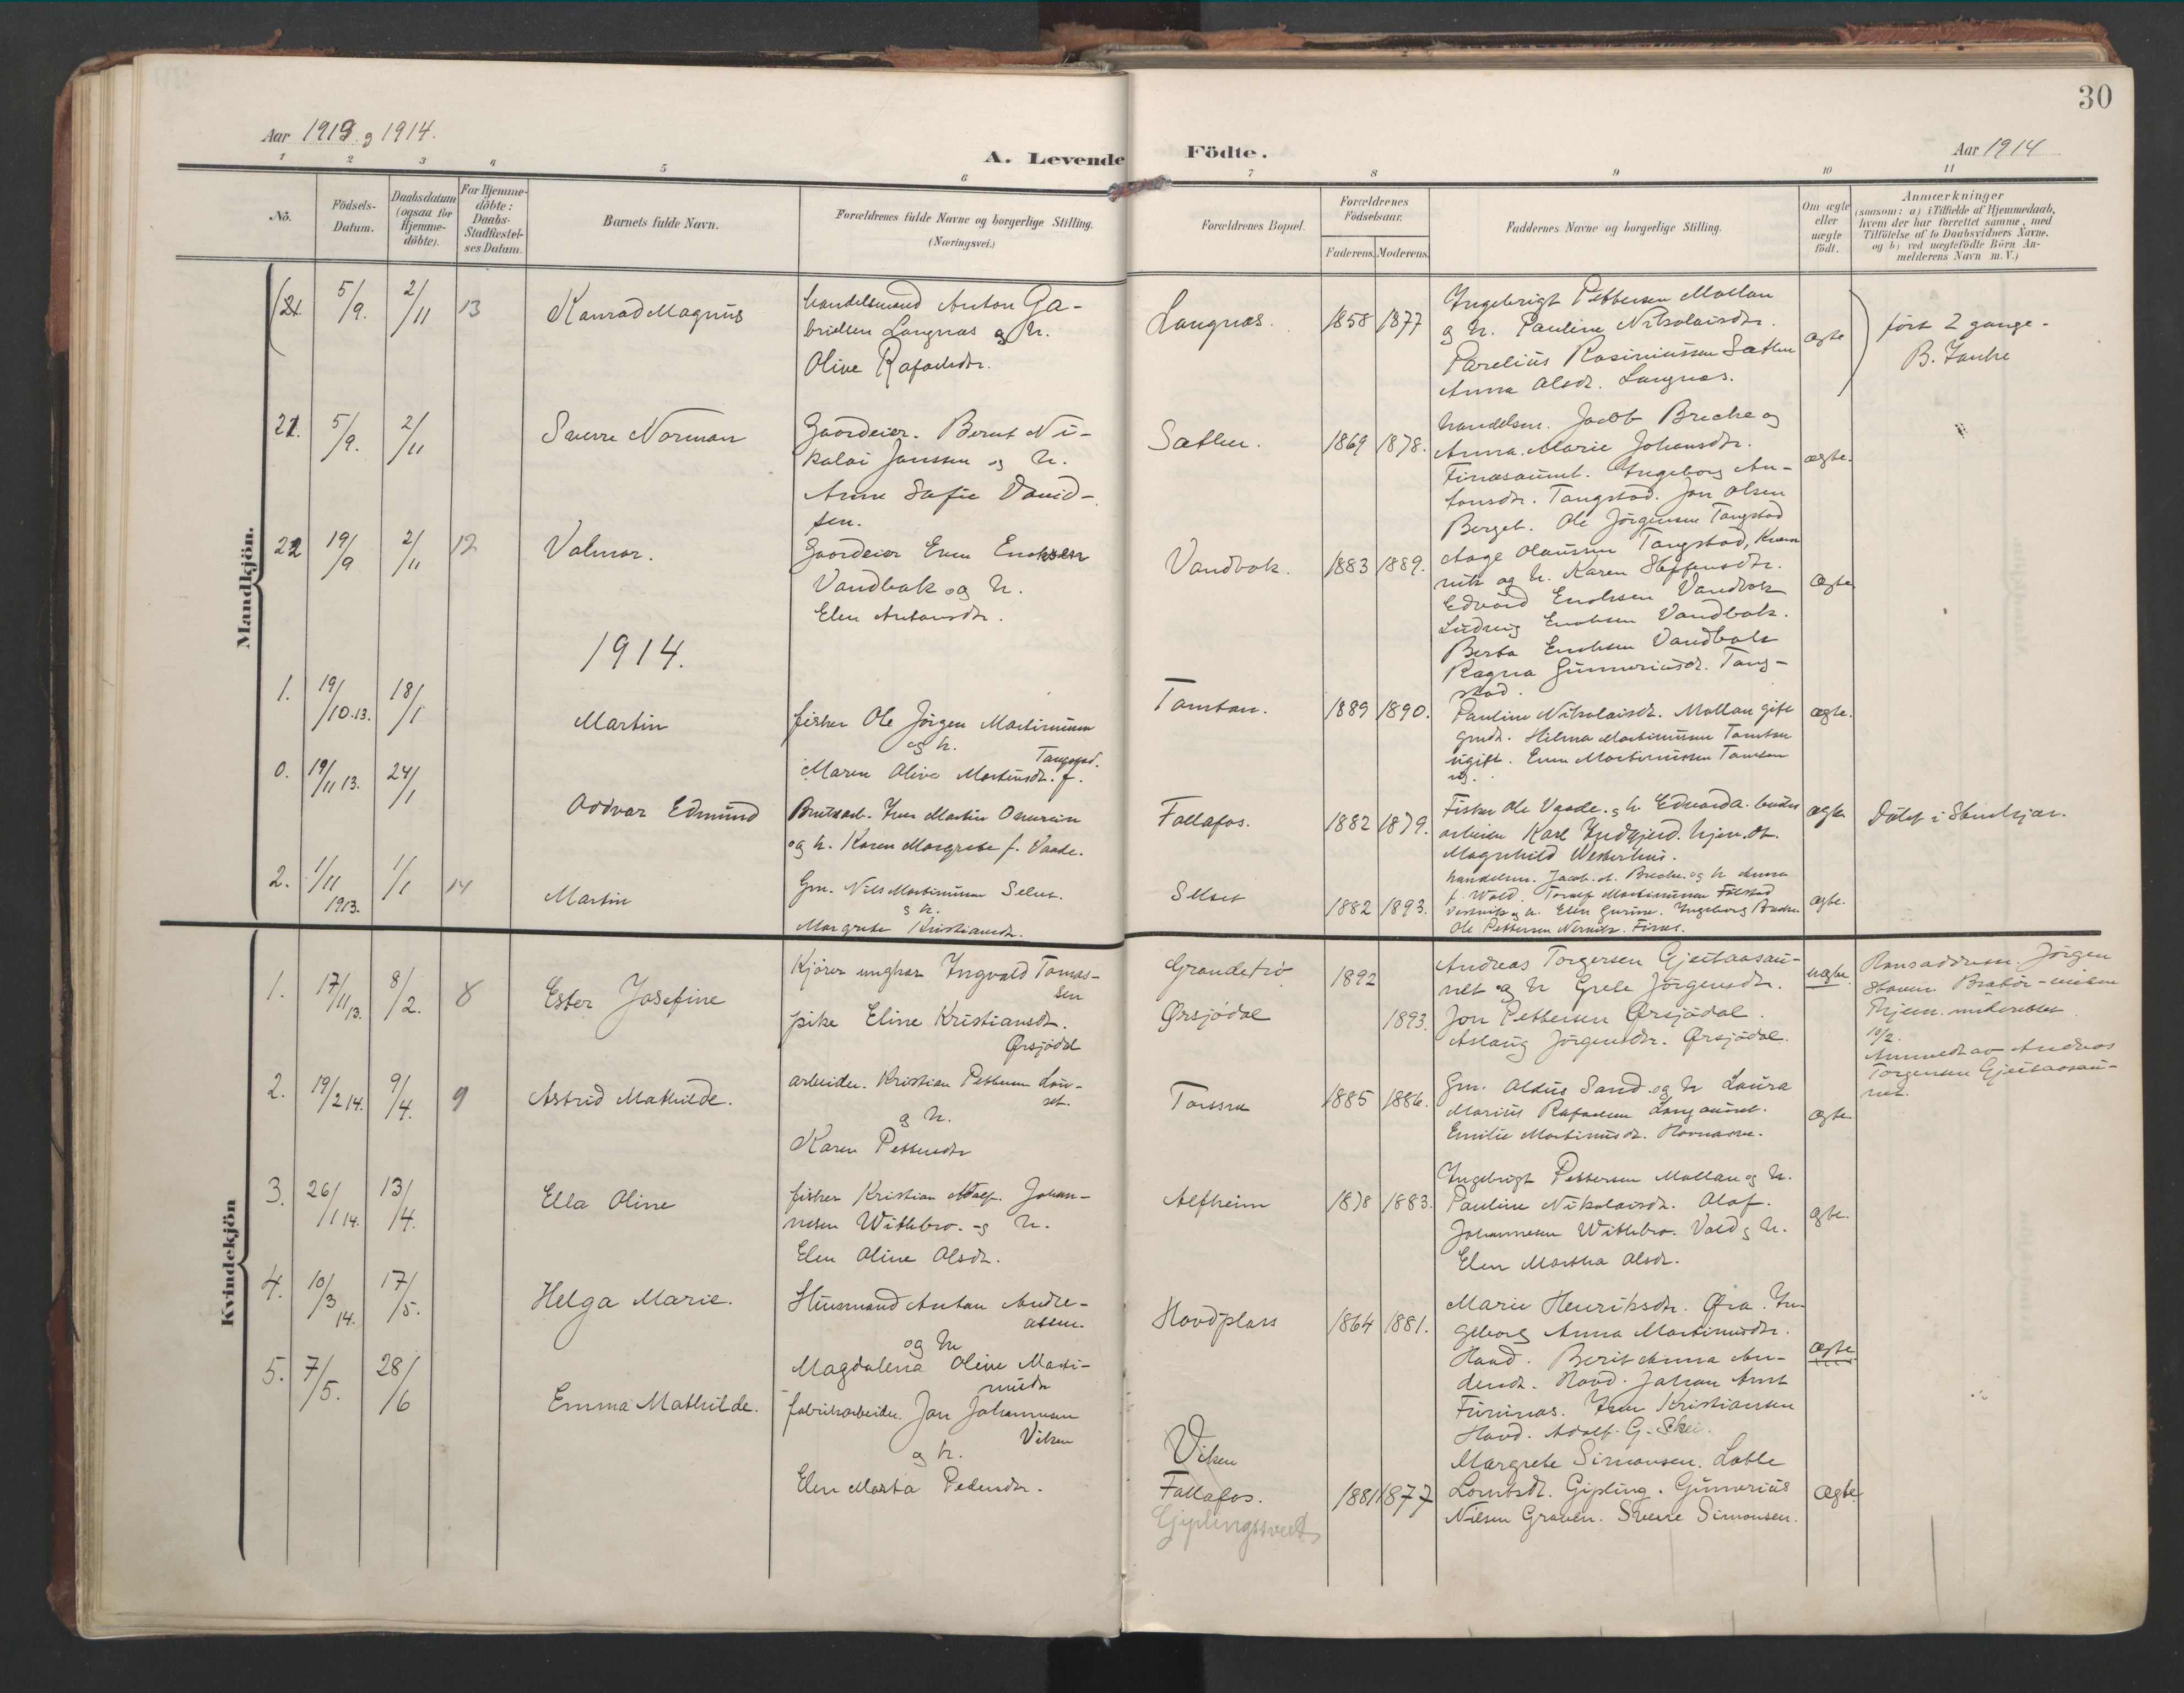 30
Aar 1913 og 1914.
A. Levende Födte.
Aar 1914
1 2 3 4 5 6 7 8 9 10 11
No.
Födsels-
Datum.
Daabsdatum
(ogsaa for
Hjemme-
döbte).
For Hjemme-
döbte:
Daabs-
Stadfæstel-
ses Datum.
Barnets fulde Navn.
Forældrenes fulde Navne og borgerlige Stilling.
(Næringsvei.)
Forældrenes Bopæl.
Forældrenes
Födselsaar.
Faderens. Moderens.
Faddernes Navne og borgerlige Stilling.
Om ægte
eller
uægte
födt.
Anmærkninger
(saasom: a) i Tilfælde af Hjemmedaab,
hvem der har forrettet samme, med
Tilföielse af to Daabsvidners Navne.
og b) ved uægtefödte Börn An-
melderens Navn m. V.)
Mandkjön.
(21. 5/9. 2/11 13
Konrad Magnus
handelsmand Anton Ga-
brielsen Langnas og h.
Olive Rafaelsdtr.
Langnas. 1858 1877
Ingebrigt Pettersen Mollan
og h. Pauline Nikolaisdtr.
Parelius Rasmussen Satlen
Anna Olsdt. Langnes.
ægte
fört 2 gange -
21. 5/9. 2/11
Sverre Norman
Gaardeier. Bernt Ni-
kolai Janssen og h.
Anne Sofie David-
sen.
Satlen. 1869 1878.
handelsm. Jacob Breche og
Anna Marie Johansdtr.
Ingeborg An-
tonsdtr. Tangstad. Jon Olsen
Berget. Ole Jörgensen Tangstad
ægte.
22 19/9 2/11 12
Valmar.
Gaardeier Even Enoksen
Vandbak og h.
Elen Antonsdtr.
Vandbak. 1883 1889.
Aage Olaussen Tangstad,
og h. Karen Steffensdtr.
Edvard Enoksen Vandbak
Ludvig Enoksen Vandbak.
Berta Enoksen Vandbak
Ragna Gunneriusdt. Tang-
stad.
ægte
1914.
1. 19/10.13. 18/1
Martin
fisker Ole Jörgen Martinusen
og h.
Maren Olive Martinsdt. f.
Tangstad.
Tamtan. 1889 1890.
Pauline Nikolaisdt. Mollan gift
Hilma Martinussen Tamtan
ugift. Even Martinussen Tamtan
ug.
ægte.
0. 19/11 13. 24/1
Oddvar Edmund
Jens Martin
og h. Karen Margrete f. Vaade.
Follafos. 1882 1879.
Fisker Ole Vaade. og h. Edvarda.
arbeider Karl
Magnhild Westerhus.
ægte
Döbt i Stenkjær.
2. 1/11 1913. 1/1 14
Martin
Gm. Nils Martinussen Selset.
og h.
Margrete Kristiansdt.
Selset 1882 1893.
handelsm. Jacob. Breche. og h Anna
f. Wold.
Ole Pettersen
ægte.
Kvindekjön
1. 17/11 13. 8/2. 8
Ester Josefine
Kjörer ungkar Ingvald Tomas-
sen
pike Eline Kristiansdt.
Ørsjödal
Grandetrö 1892
Ørsjödal 1893.
Andreas Torgersen Gjeitaasau-
net og h Grete Jörgensdtr.
Jon Pettersen Ørsjödal.
Aslaug Jörgensdtr. Ørsjödal.
uægte.
Jörgen
10/2
Anmeldt av Andreas
Torgersen Gjeitaasau-
net.
2. 19/2 14. 9/4. 9
Astrid Mathilde.
arbeider. Kristian Pettersen
og h.
Karen Pettersdtr
1885 1886.
Gm. Aldus Sand og h Laura
Marius Rafaelsen
Emilie Martinusdt.
ægte
3. 26/1 14. 13/4.
Ella Oline
fisker Kristian Adolf. Johan-
nesen Wittebro. og h.
Elen Oline Olsdt.
Alfheim 1878 1883.
Ingebrigt Pettersen Mollan og h.
Pauline Nikolaisdt. Olaf
Johannesen Wittebro. Vald og h.
Elen Martha Olsdt.
ægte.
4. 10/3 14. 17/5.
Helga Marie.
Husmand Anton Andre-
assen.
og h
Magdalena Oline Marti-
nusdt
Hovdplass 1864 1881.
Marie Henriksdtr. Øra. In-
geborg Anna Martinusdtr.
Haavd. Berit Anna An-
dersdt. Hovd. Johan Arnt
Furunes. Jens Kristiansen
Hovd. Adolf. G. Skei.
ægte
5. 7/5. 28/6
Emma Mathilde.
fabrikarbeider. Jon Johannesen
Viken
og h.
Elen Marta Pedersdtr.
Viken
Follafos.
Giplingsvect
1881 1877
Margrete Simonsen. Lotte
Lorntsdt. Gipling. Gunerius
Nilsen Graven. Sverre Simonsen.
ægte